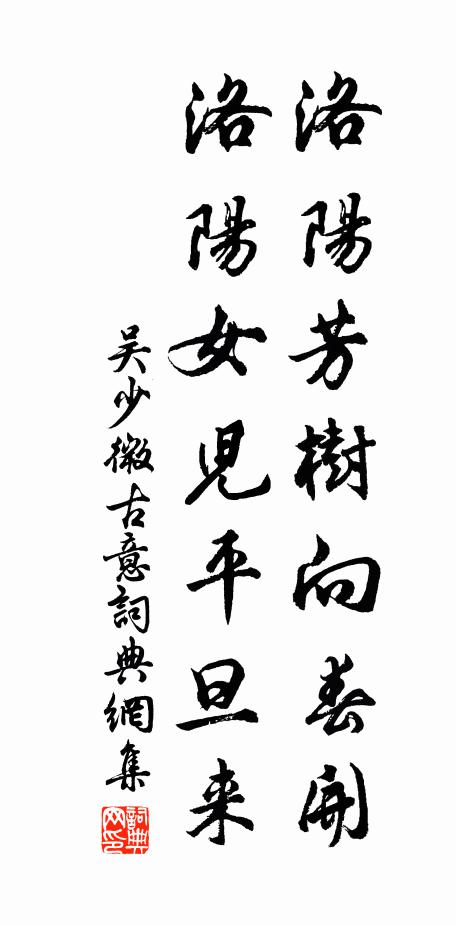 洛陽芳樹向春開
洛陽女児平旦来
吴少微古意詞典網集
詞典网印